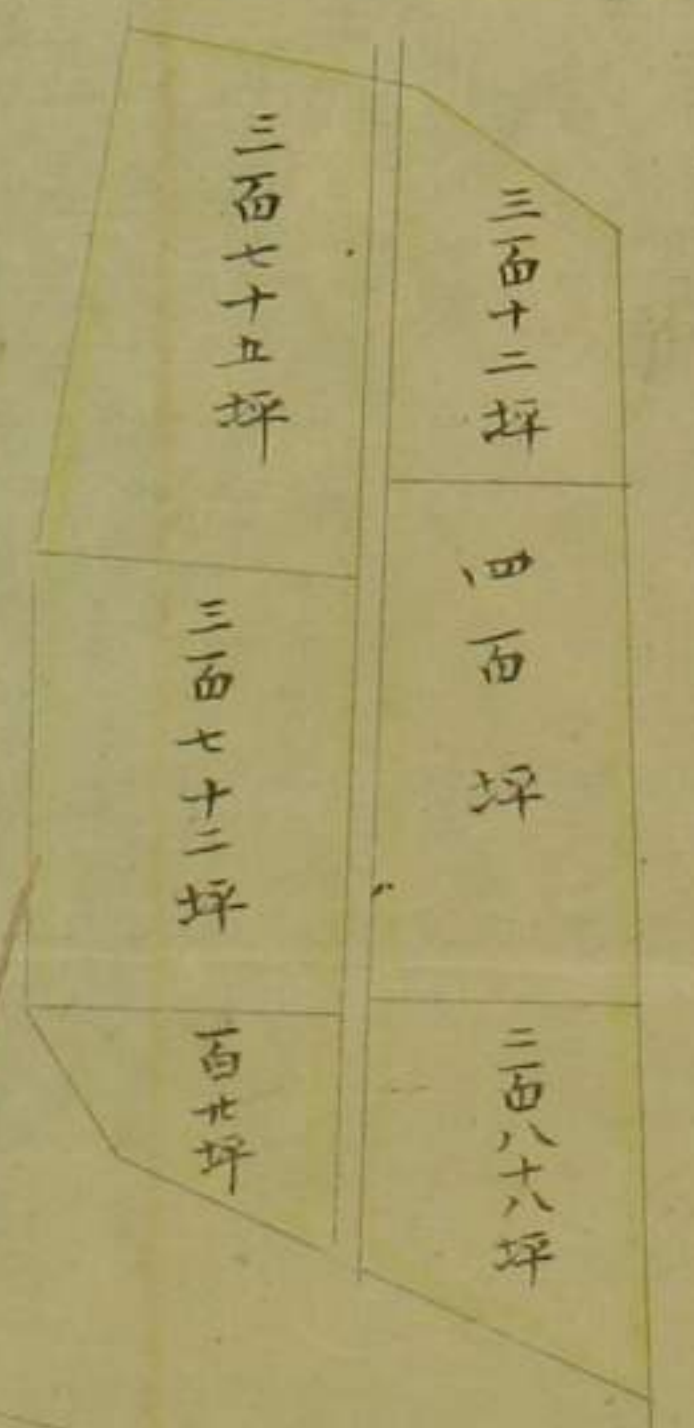 三百十二坪
四百坪
二百八十八坪
三百七十五坪
三百七十二坪
百廿坪